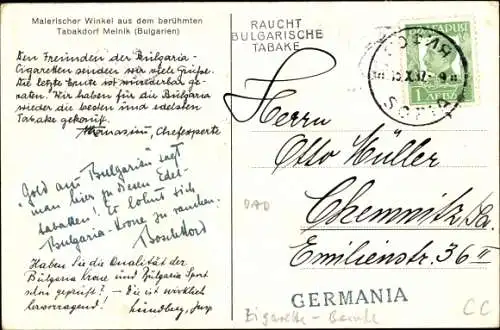 Malerischer Winkel aus dem berühmten
Tabakdorf Melnik (Bulgarien)
Den Freunden der Bulgaria-
Cigaretten senden wir viele Grüße.
Die letzte Ernte ist wunderbar ge-
raten. Wir haben für die Bulgaria
wieder die besten und edelsten
Tabake gekauft.
Athanasiu, Chefexperte
"Gold aus Bulgarien" sagt
man hier zu diesen Edel-
tabaken! Es lohnt sich
Bulgaria-Krone zu rauchen.
Haben Sie die Qualität der
Bulgaria Krone und Bulgaria Sport
schon geprüft? - die ist wirklich
hervorragend! Lundberg,
RAUCHT
BULGARISCHE
TABAKE
СОФИЯ
SOFIA
1 ЛЕВЪ
Herrn
Otto Müller
Chemnitz Sa.
Emilienstr. 36 II
GERMANIA
Zigarette-
CC